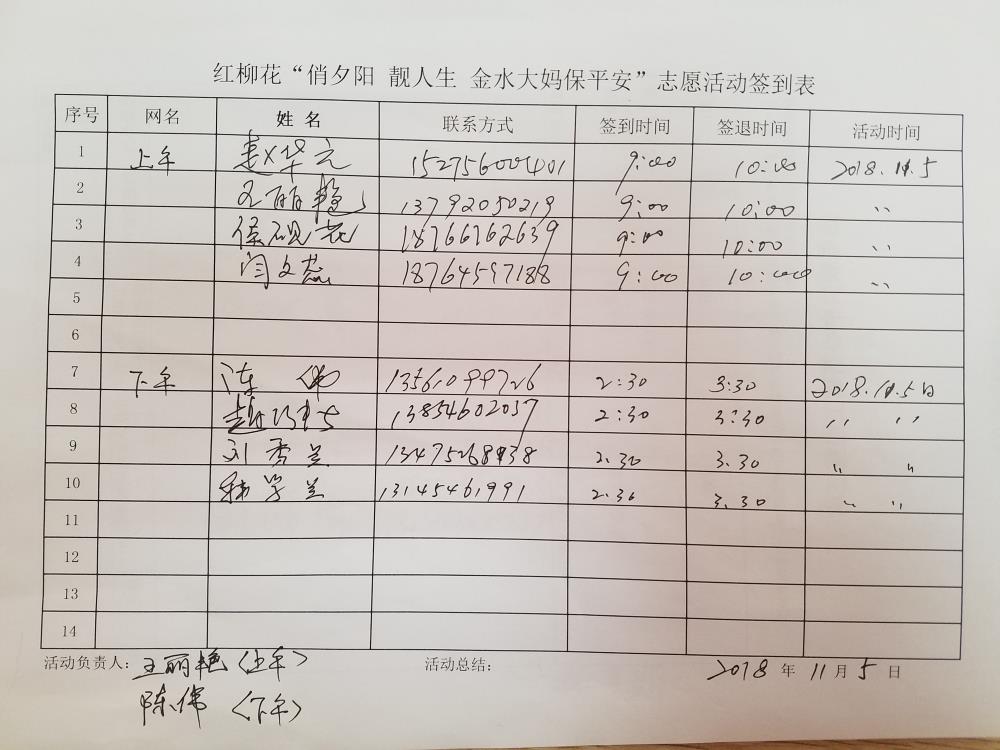 红柳花“俏夕阳 靓人生 金水大妈保平安”志愿活动签到表
序号 网名 姓名 联系方式 签到时间 签退时间 活动时间
1 上午 华元 15275600401 9:00 10:00 2018.11.5
2 王丽艳 13792050219 9:00 10:00 〃
3 侯砚花 18766762639 9:00 10:00 〃
4 闫文蕊 18764597188 9:00 10:00 〃
5
6
7 下午 陈伟 13561099726 2:30 3:30 2018.11.5日
8 赵 13854602037 2:30 3:30 〃 〃
9 刘秀兰 13475268938 2.30 3.30 〃 〃
10 学兰 13145461991 2.30 3.30 〃 〃
11
12
13
14
活动负责人：王丽艳（上午） 活动总结： 2018年11月5日
陈伟（下午）